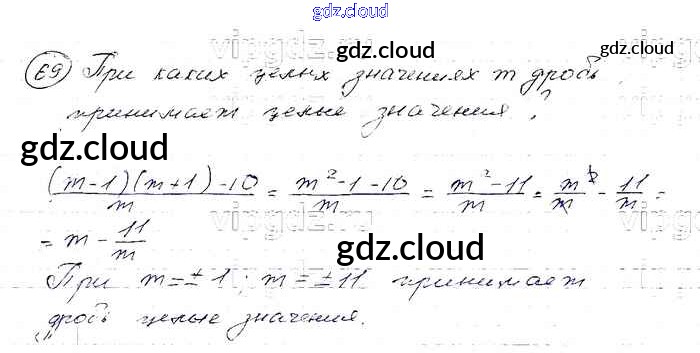 gdz.cloud
gdz.cloud
gdz.cloud
69 При каких целых значениях m дробь
принимает целые значения?
gdz.cloud
(m-1)(m+1)-10/m = m²-1-10/m = m²-11/m = m²/m - 11/m =
= m - 11/m
gdz.cloud
При m=±1; m=±11 принимает
дробь целые значения.
gdz.cloud